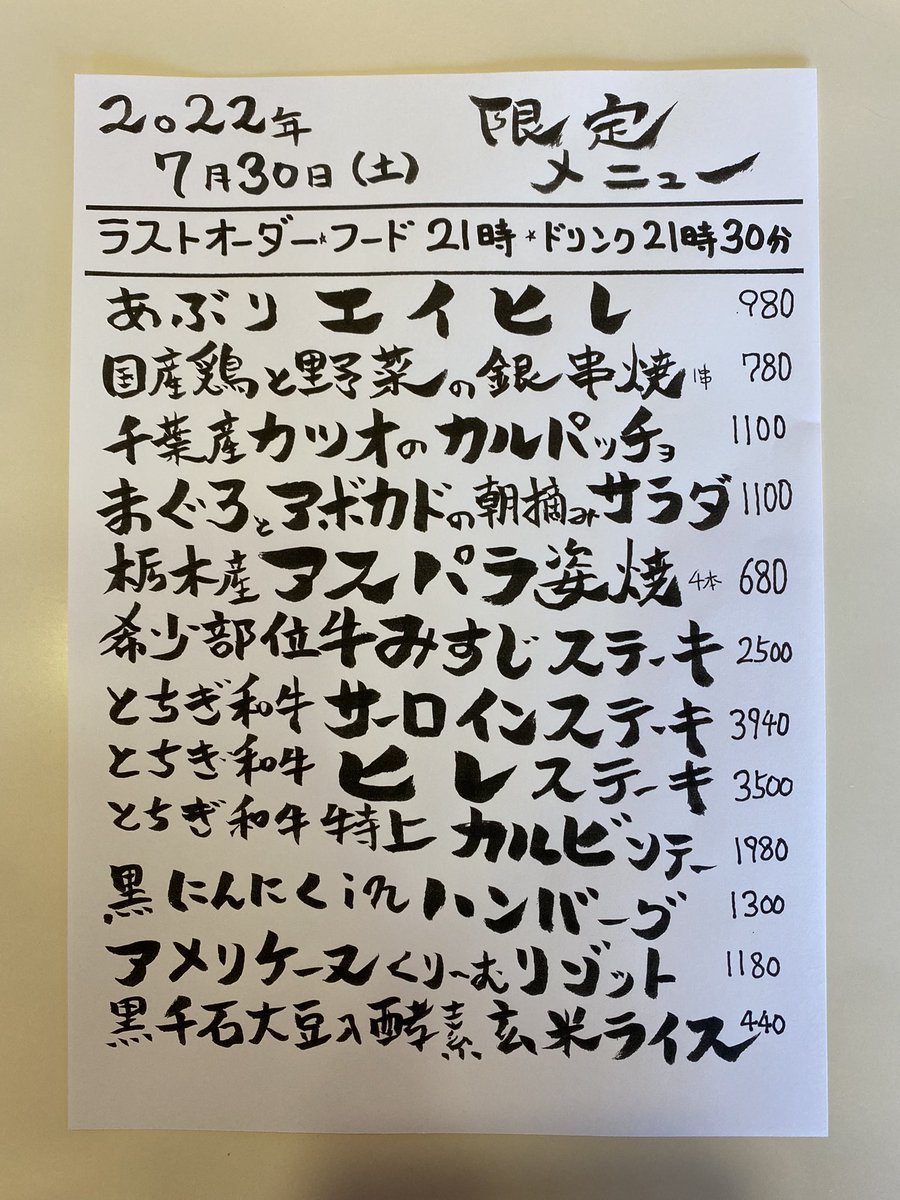 2022年
7月30日(土)
限定
メニュー
ラストオーダー*フード 21時 *ドリンク21時30分
あぶり エイヒレ 980
国産鶏と野菜の銀串焼 1串 780
千葉産カツオのカルパッチョ 1100
まぐろとアボカドの朝摘みサラダ 1100
栃木産アスパラ姿焼 4本 680
希少部位牛みすじステーキ 2500
とちぎ和牛 サーロインステーキ 3940
とちぎ和牛 ヒレステーキ 3500
とちぎ和牛 特上 カルビソテー 1980
黒にんにくinハンバーグ 1300
アメリケーヌくり~むリゾット 1180
黒千石大豆入酵素玄米ライス 440